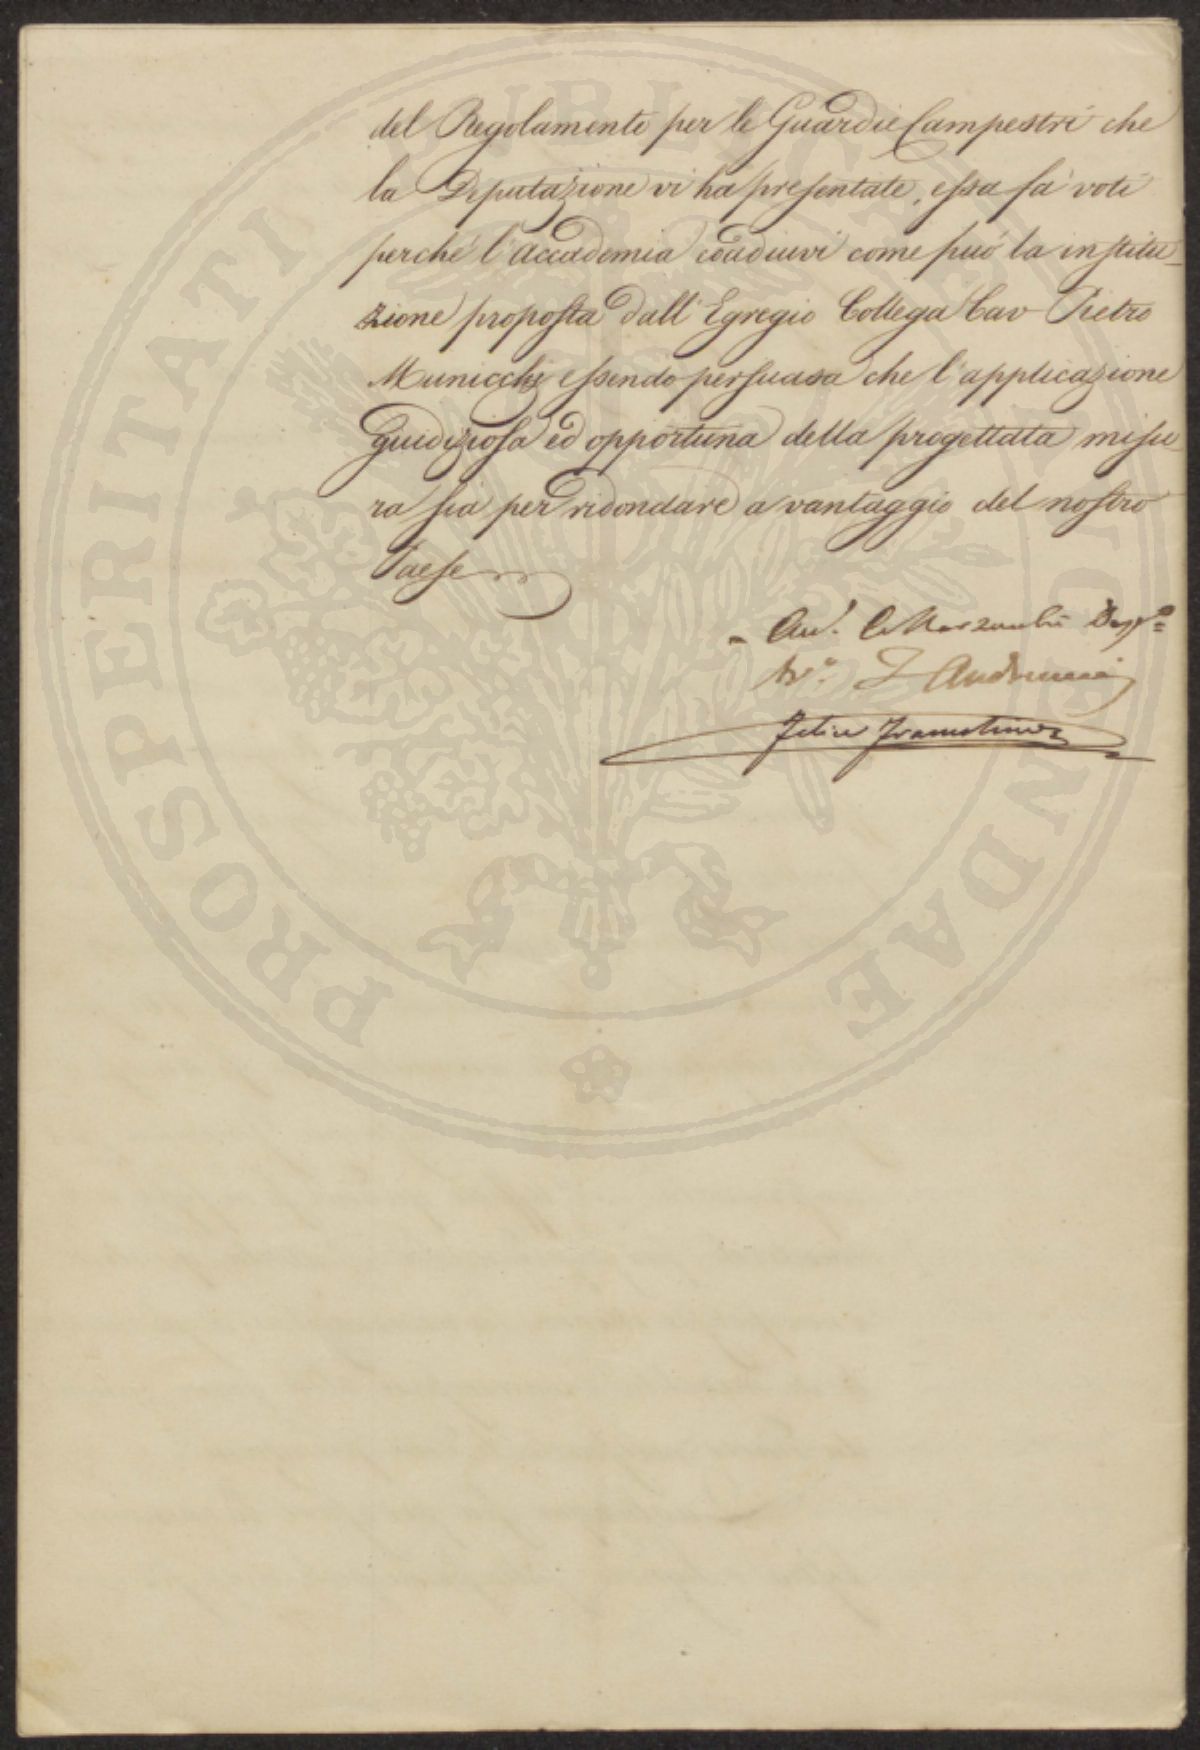 del Regolamento per le Guardie Campestri che
la Deputazione vi ha presentate, essa fa voti
perché l'Accademia coadiuvi come può la institu-
zione proposta dall'Egregio Collega Cav Pietro
Municchi essendo persuasa che l'applicazione
Giudiziosa ed opportuna della progettata misu-
ra sia per ridondare a vantaggio del nostro
Paese
Felice Francolini
PROSPERITATI PUBLICAE AUGENDAE